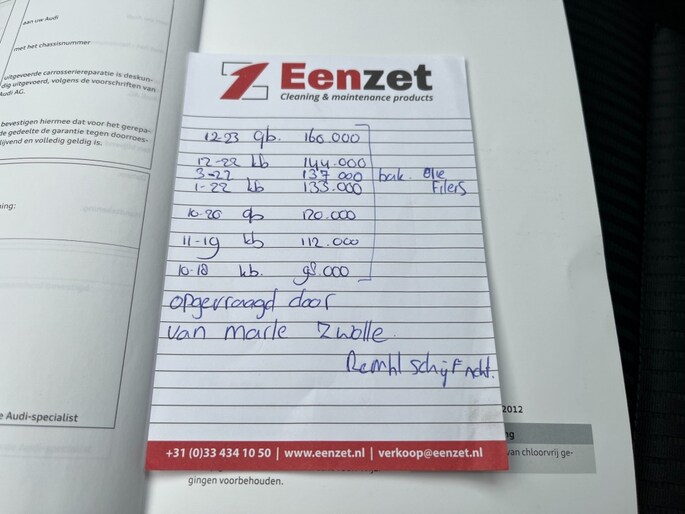 aan uw Audi
met het chassisnummer
uitgevoerde carrosseriereparatie is deskun-
dig uitgevoerd, volgens de voorschriften van
Audi AG.
bevestigen hiermee dat voor het gerepa-
de gedeelte de garantie tegen doorroes-
lijvend en volledig geldig is.
ning:
e Audi-specialist
1Z Eenzet
Cleaning & maintenance products
12-23 gb. 160.000
12-22 kb 144.000
3-22 137.000 bak. olie
1-22 kb 133.000 Filers
10-20 gb 120.000
11-19 kb 112.000
10-18 kb. 98.000
opgevraagd door
van Marle Zwolle.
Remhl schijf acht.
+31 (0)33 434 10 50 | www.eenzet.nl | verkoop@eenzet.nl
2012
ng
van chloorvrij ge-
gingen voorbehouden.